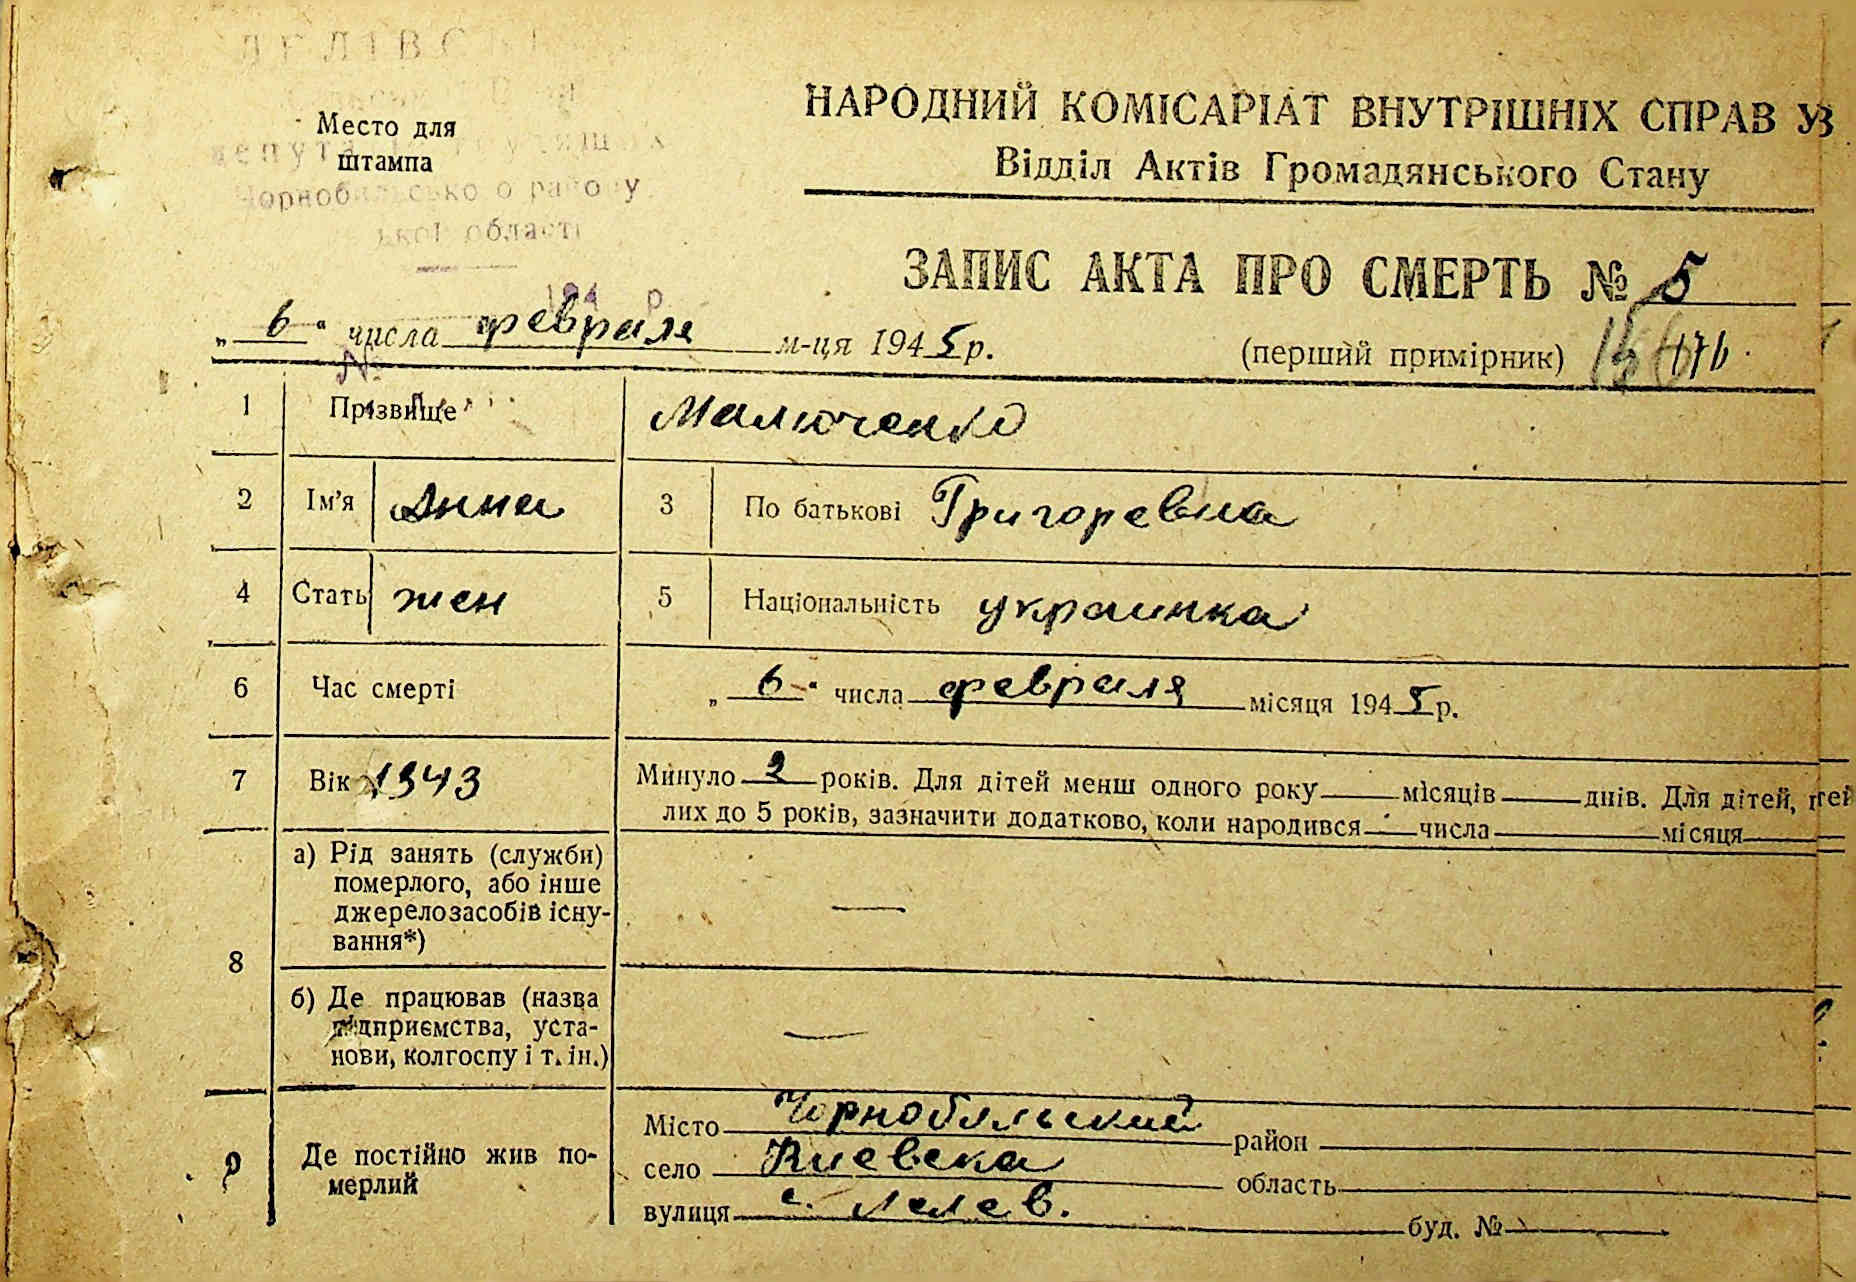 Место для
штампа
Чорнобильсько о району
області
НАРОДНИЙ КОМІСАРІАТ ВНУТРІШНІХ СПРАВ
Відділ Актів Громадянського Стану
ЗАПИС АКТА ПРО СМЕРТЬ № 5
„6“ числа февраля м-ця 1945р.
(перший примірник) 176
1 Прізвище Малюченко
2 Ім'я Анна 3 По батькові Григоревна
4 Стать жен 5 Національність украинка
6 Час смерті „6“ числа февраля місяця 1945р.
7 Вік 1943 Минуло 2 років. Для дітей менш одного року місяців днів. Для дітей,
лих до 5 років, зазначити додатково, коли народився числа місяця
8 а) Рід занять (служби)
померлого, або інше
джерело засобів існу-
вання*) —
б) Де працював (назва
підприємства, уста-
нови, колгоспу і т. ін.) —
9 Де постійно жив по-
мерлий
Місто Чорнобильский район
село Киевска область
вулиця с. Лелев. буд. №